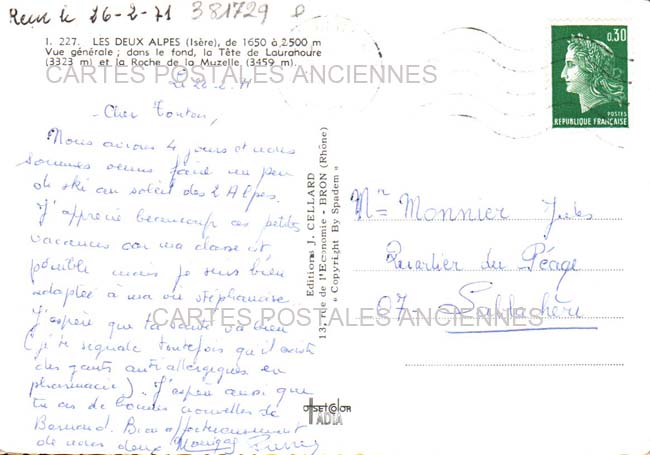 Reçu le 26-2-71 381729
I. 227. LES DEUX ALPES (Isère), de 1650 à 2500 m
Vue générale ; dans le fond, la Tête de Lauranoure
(3323 m) et la Roche de la Muzelle (3459 m).
CARTES POSTALES ANCIENNES
Cher Tonton,
Nous avions 4 jours et nous
sommes venus faire un peu
de ski au soleil des 2 Alpes.
J'apprécie beaucoup ces petites
vacances car ma classe est
pénible mais je suis bien
adaptée à ma vie stéphanoise
J'espère que ta santé va bien
(je te signale toutefois qu'il existe
des gants antiallergiques en
pharmacie). J'espère aussi que
tu as de bonnes nouvelles de
Bernard. Bien affectueusement
de nous deux
Editions J. CELLARD
13, rue de l'Economie - BRON (Rhône)
« Copyright By Spadem »
OFFSETCOLOR
IADIA
0,30
POSTES
REPUBLIQUE FRANÇAISE
Mr Monnier Jules
Quartier du Péage
07- Lablachère
CARTES POSTALES ANCIENNES